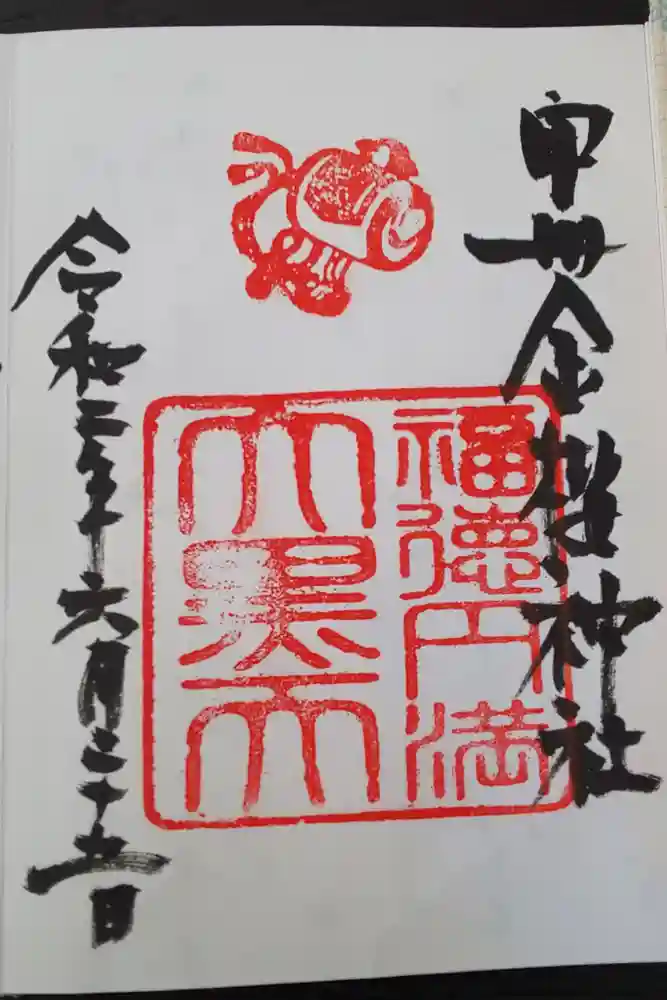 甲州金桜神社
福徳円満
大黒天
令和二年六月二十五日